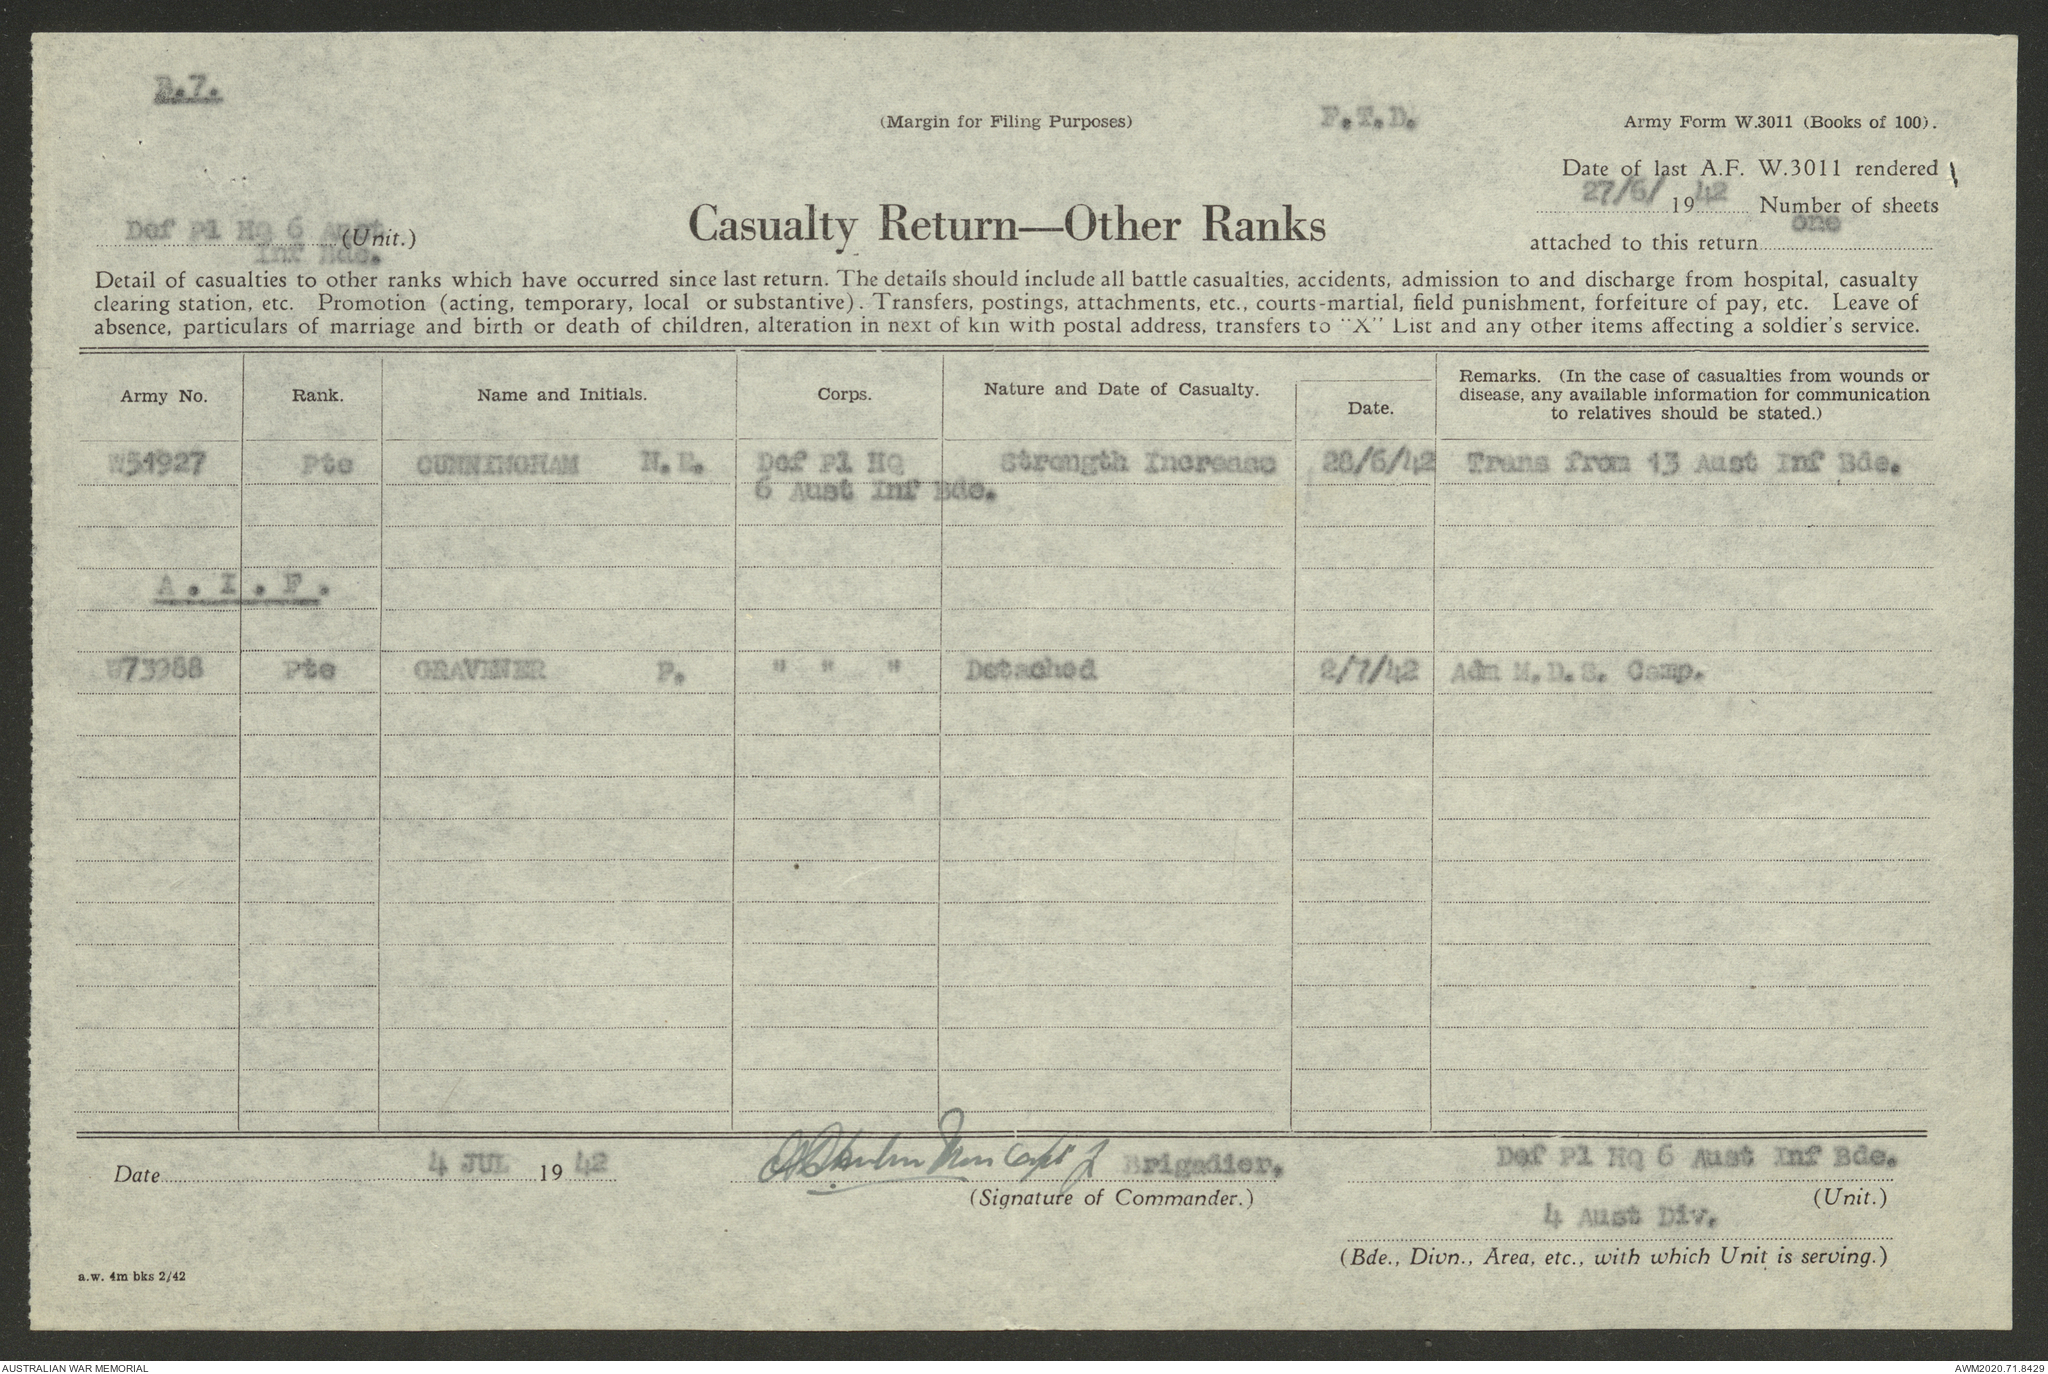 B.7.
(Margin for Filing Purposes)
F.T.D.
Army Form W.3011 (Books of 100).
Date of last A.F. W.3011 rendered
27/6/ 1942 Number of sheets
attached to this return one
Def Pl HQ 6 Aust (Unit.)
Inf Bde.
Casualty Return—Other Ranks
Detail of casualties to other ranks which have occurred since last return. The details should include all battle casualties, accidents, admission to and discharge from hospital, casualty
clearing station, etc. Promotion (acting, temporary, local or substantive). Transfers, postings, attachments, etc., courts-martial, field punishment, forfeiture of pay, etc. Leave of
absence, particulars of marriage and birth or death of children, alteration in next of kin with postal address, transfers to "X" List and any other items affecting a soldier's service.
Army No. Rank. Name and Initials. Corps. Nature and Date of Casualty. Date. Remarks. (In the case of casualties from wounds or
disease, any available information for communication
to relatives should be stated.)
W51927 Pte CUNNINGHAM N.E. Def Pl HQ Strength Increase 28/6/42 Trans from 13 Aust Inf Bde.
6 Aust Inf Bde.
A.I.F.
W73988 Pte GRAVENER P. " " " Detached 2/7/42 Adm M.D.S. Camp.
Date 4 JUL 1942
Capt
Brigadier.
(Signature of Commander.)
Def Pl HQ 6 Aust Inf Bde.
(Unit.)
4 Aust Div.
(Bde., Divn., Area, etc., with which Unit is serving.)
a.w. 4m bks 2/42
AUSTRALIAN WAR MEMORIAL
AWM2020.71.8429